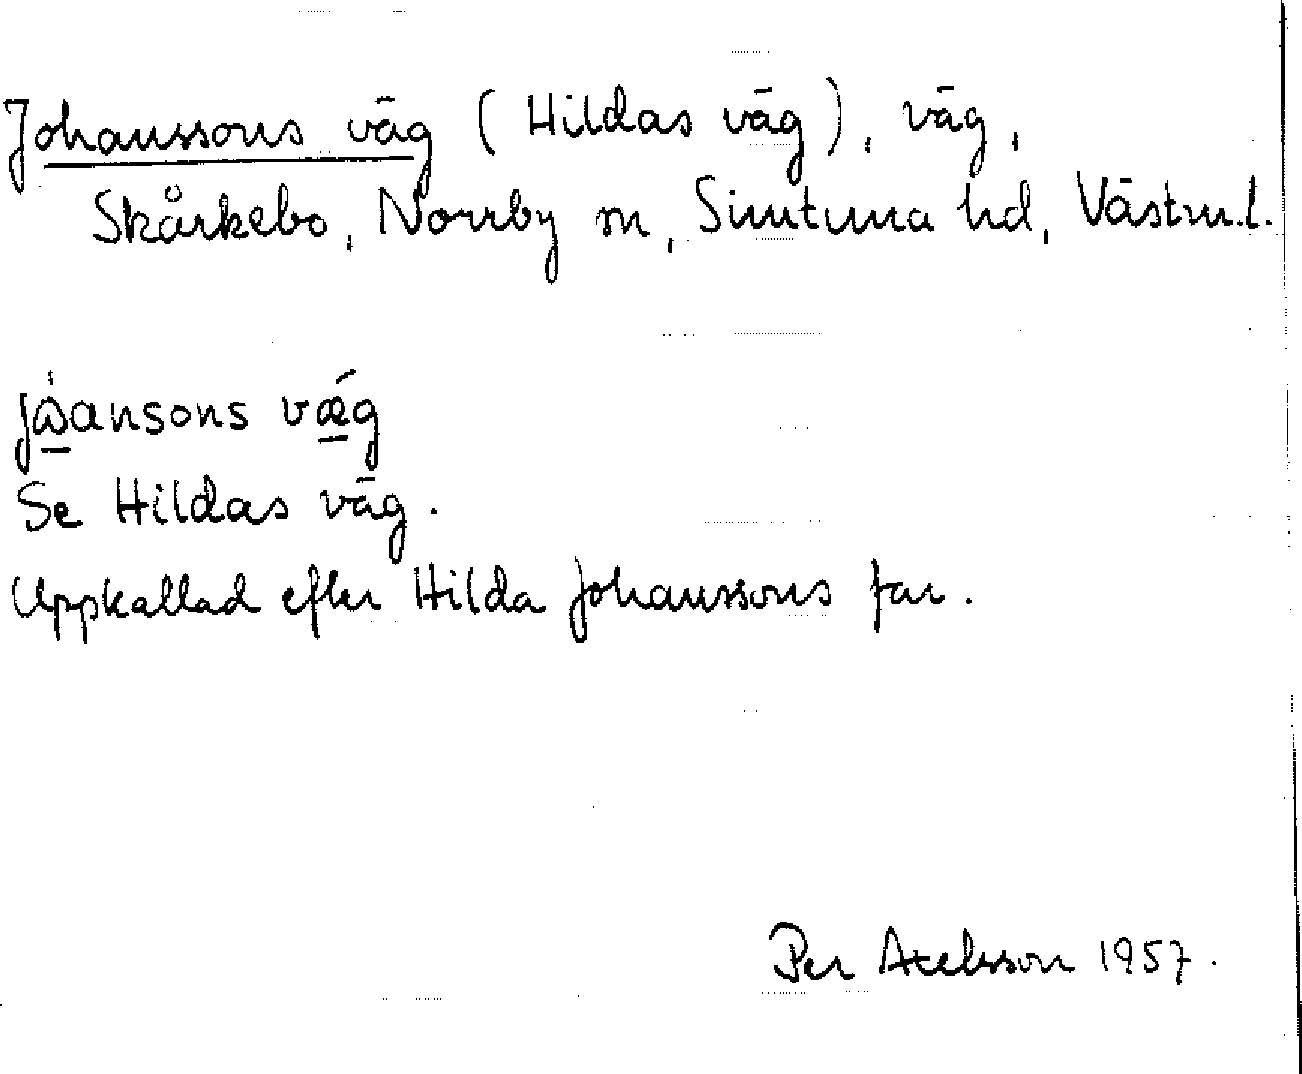 Johanssons väg (Hildas väg), väg,
Skårkebo, Norrby sn, Simtuna hd, Västm.l.
jå̱̇ansons vǽ̱g
Se Hildas väg.
Uppkallad efter Hilda Johanssons far.
Per Axelsson 1957.